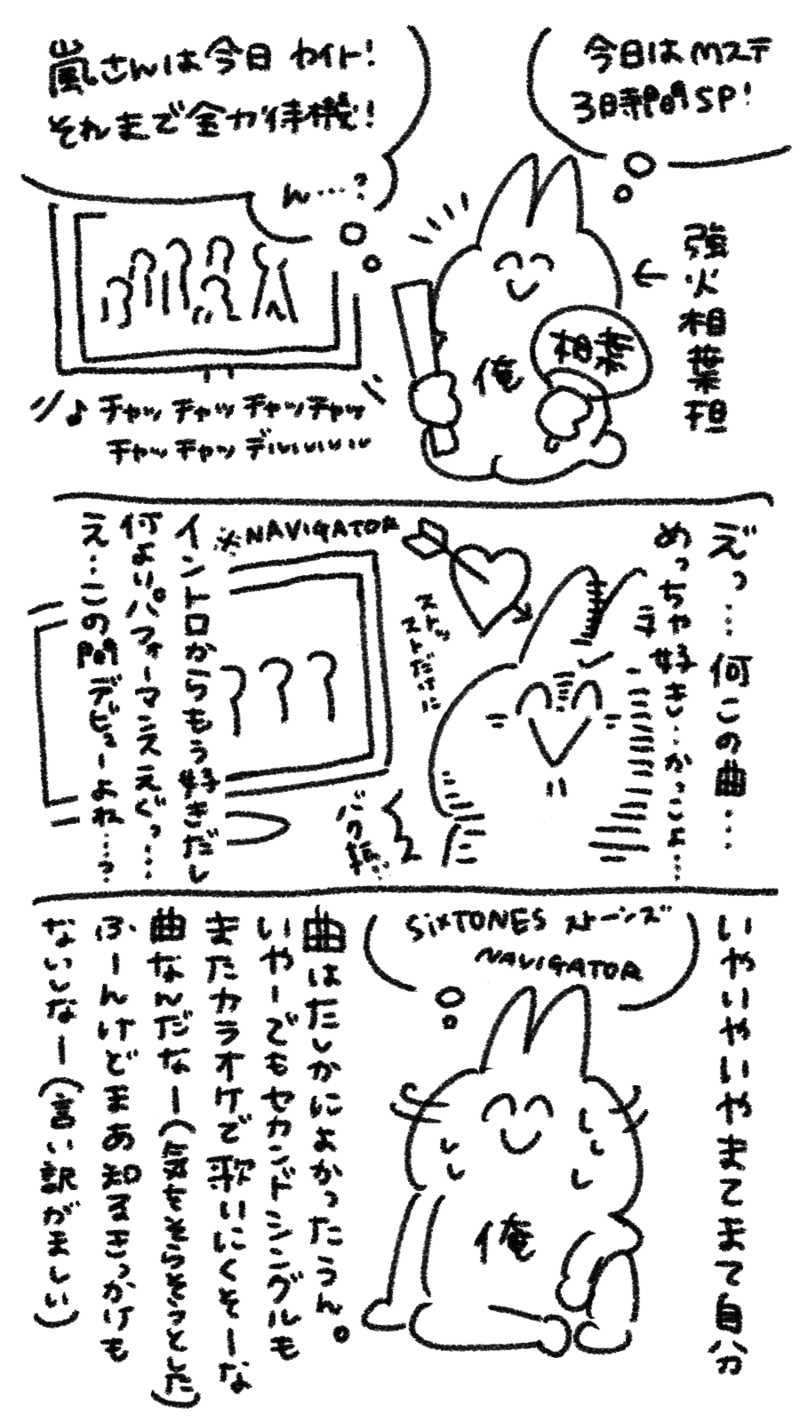 今日はMステ
3時間SP!
嵐さんは今日 カイト!
それまで全力待機!
ん…?
強火相葉担
相葉
俺
♪チャッ チャッ チャッチャッ
チャッチャッ デルルルルル
えっ…何この曲…
めっちゃ好き…かっこよ…
ストッ
ストだけに
※NAVIGATOR
イントロからもう好きだし
何よりパフォーマンスえぐっ…
え…この間デビューよね…っ
バク転…
いやいやいやまてまて自分
SixTONES ストーンズ
NAVIGATOR
俺
曲はたしかによかったうん。
いやーでもセカンドシングルも
またカラオケで歌いにくそーな
曲なんだなー(気をそらそうとした)
ふーんけどまあ知るきっかけも
ないしなー(言い訳がましい)